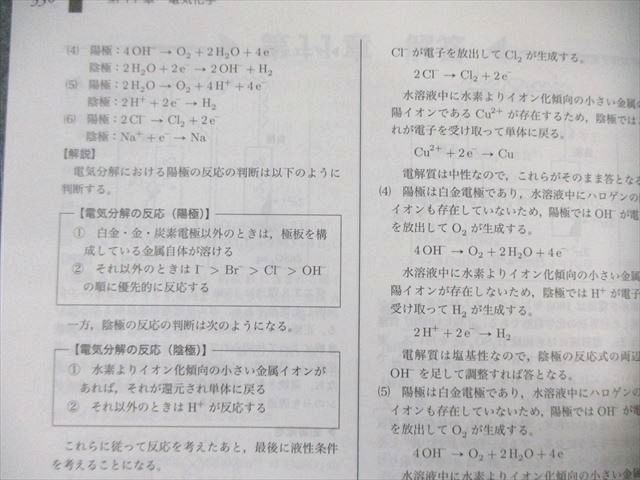 336
第11章 電気化学
(4) 陽極：4OH⁻ → O₂＋2H₂O＋4e⁻
陰極：2H₂O＋2e⁻ → 2OH⁻＋H₂
(5) 陽極：2H₂O → O₂＋4H⁺＋4e⁻
陰極：2H⁺＋2e⁻ → H₂
(6) 陽極：2Cl⁻ → Cl₂＋2e⁻
陰極：Na⁺＋e⁻ → Na
【解説】
電気分解における陽極の反応の判断は以下のように
判断する。
【電気分解の反応（陽極）】
① 白金・金・炭素電極以外のときは，極板を構
成している金属自体が溶ける
② それ以外のときは I⁻ ＞ Br⁻ ＞ Cl⁻ ＞ OH⁻
の順に優先的に反応する
一方，陰極の反応の判断は次のようになる。
【電気分解の反応（陰極）】
① 水素よりイオン化傾向の小さい金属イオンが
あれば，それが還元され単体に戻る
② それ以外のときは H⁺ が反応する
これらに従って反応を考えたあと，最後に液性条件
を考えることになる。
Cl⁻ が電子を放出して Cl₂ が生成する。
2Cl⁻ → Cl₂＋2e⁻
水溶液中に水素よりイオン化傾向の小さい金属
陽イオンである Cu²⁺ が存在するため，陰極では
れが電子を受け取って単体に戻る。
Cu²⁺＋2e⁻ → Cu
電解質は中性なので，これらがそのまま答とな
(4) 陽極は白金電極であり，水溶液中にハロゲンの
イオンも存在していないため，陽極では OH⁻ が電
を放出して O₂ が生成する。
4OH⁻ → O₂＋2H₂O＋4e⁻
水溶液中に水素よりイオン化傾向の小さい金属
陽イオンが存在しないため，陰極では H⁺ が電子
受け取って H₂ が生成する。
2H⁺＋2e⁻ → H₂
電解質は塩基性なので，陰極の反応式の両辺
OH⁻ を足して調整すれば答となる。
(5) 陽極は白金電極であり，水溶液中にハロゲンの
イオンも存在していないため，陽極では OH⁻ が電
を放出して O₂ が生成する。
4OH⁻ → O₂＋2H₂O＋4e⁻
水溶液中に水素よりイオン化傾向の小さい金属